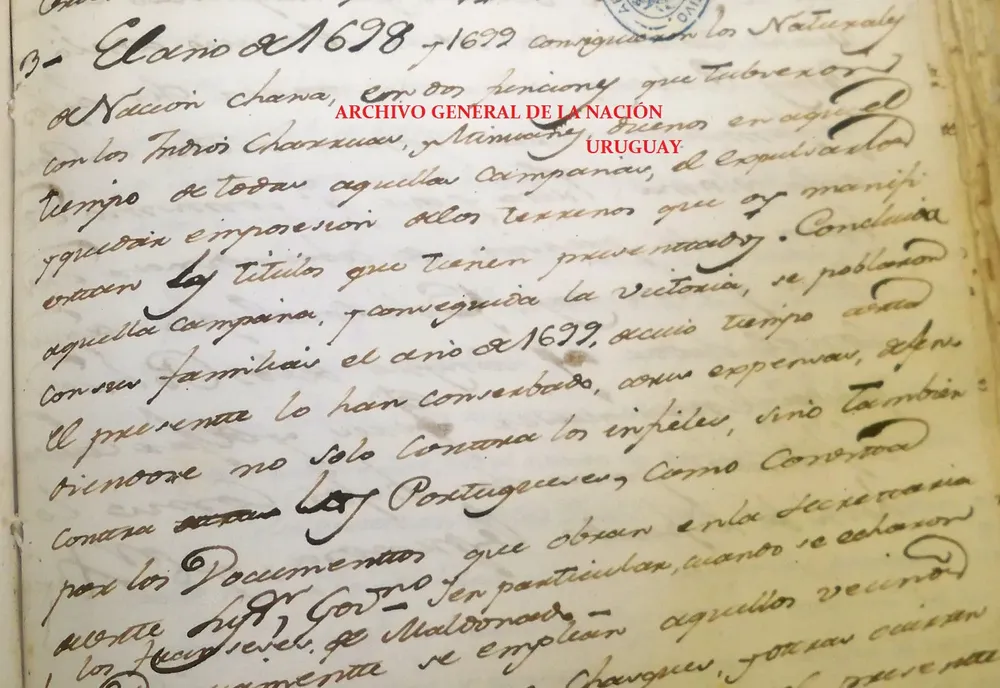 3- El año de 1698 y 1699 consiguieron los Naturales
de Nacion chana, en dos funciones que tubieron
ARCHIVO GENERAL DE LA NACIÓN
URUGUAY
con los Indios Charruas, y Minuanes, duenos en aquel
tiempo de todas aquellas campañas, el expulsarlos
y quedar emposesion dellos terrenos que oy manifi
estan los titulos que tienen presentados. Concluida
aquella campaña, y conseguida la victoria, se poblaron
con sus familias el año de 1699, acuio tiempo asta
el presente lo han conserbado, asus expensas, defen
diendose no solo contra los infieles, sino tambien
contra los Portugueses, como consta
por los Documentos que obran en la secretaria
de Govno en particular, cuando se echaron
los Franseses de Maldonado-
se emplean aquellos vecinos
chasques, y otras